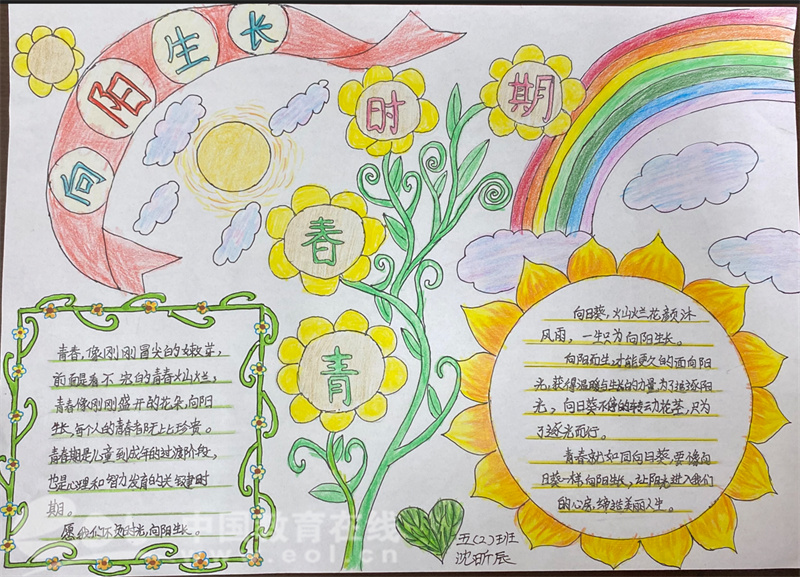 向阳生长
青春时期
青春,像刚刚冒尖的嫩芽,
前面是看不完的青春灿烂,
青春像刚刚盛开的花朵,向阳
生长,每个人的青春都无比珍贵。
青春期是儿童到成年的过渡阶段,
也是心理和智力发育的关键时
期。
愿我们不负时光,向阳生长。
向日葵,灿烂花颜沐
风雨,一生只为向阳生长。
向阳而生,才能更久的面向阳
光,获得温暖与生长的力量为了追逐阳
光,向日葵不停的转动花茎,只为
了逐光而行。
青春就如同向日葵,要像向
日葵一样,向阳生长,让阳光进入我们
的心房,缔造美丽人生。
五(2)班
沈昕辰
中国教育在线
www.eol.cn